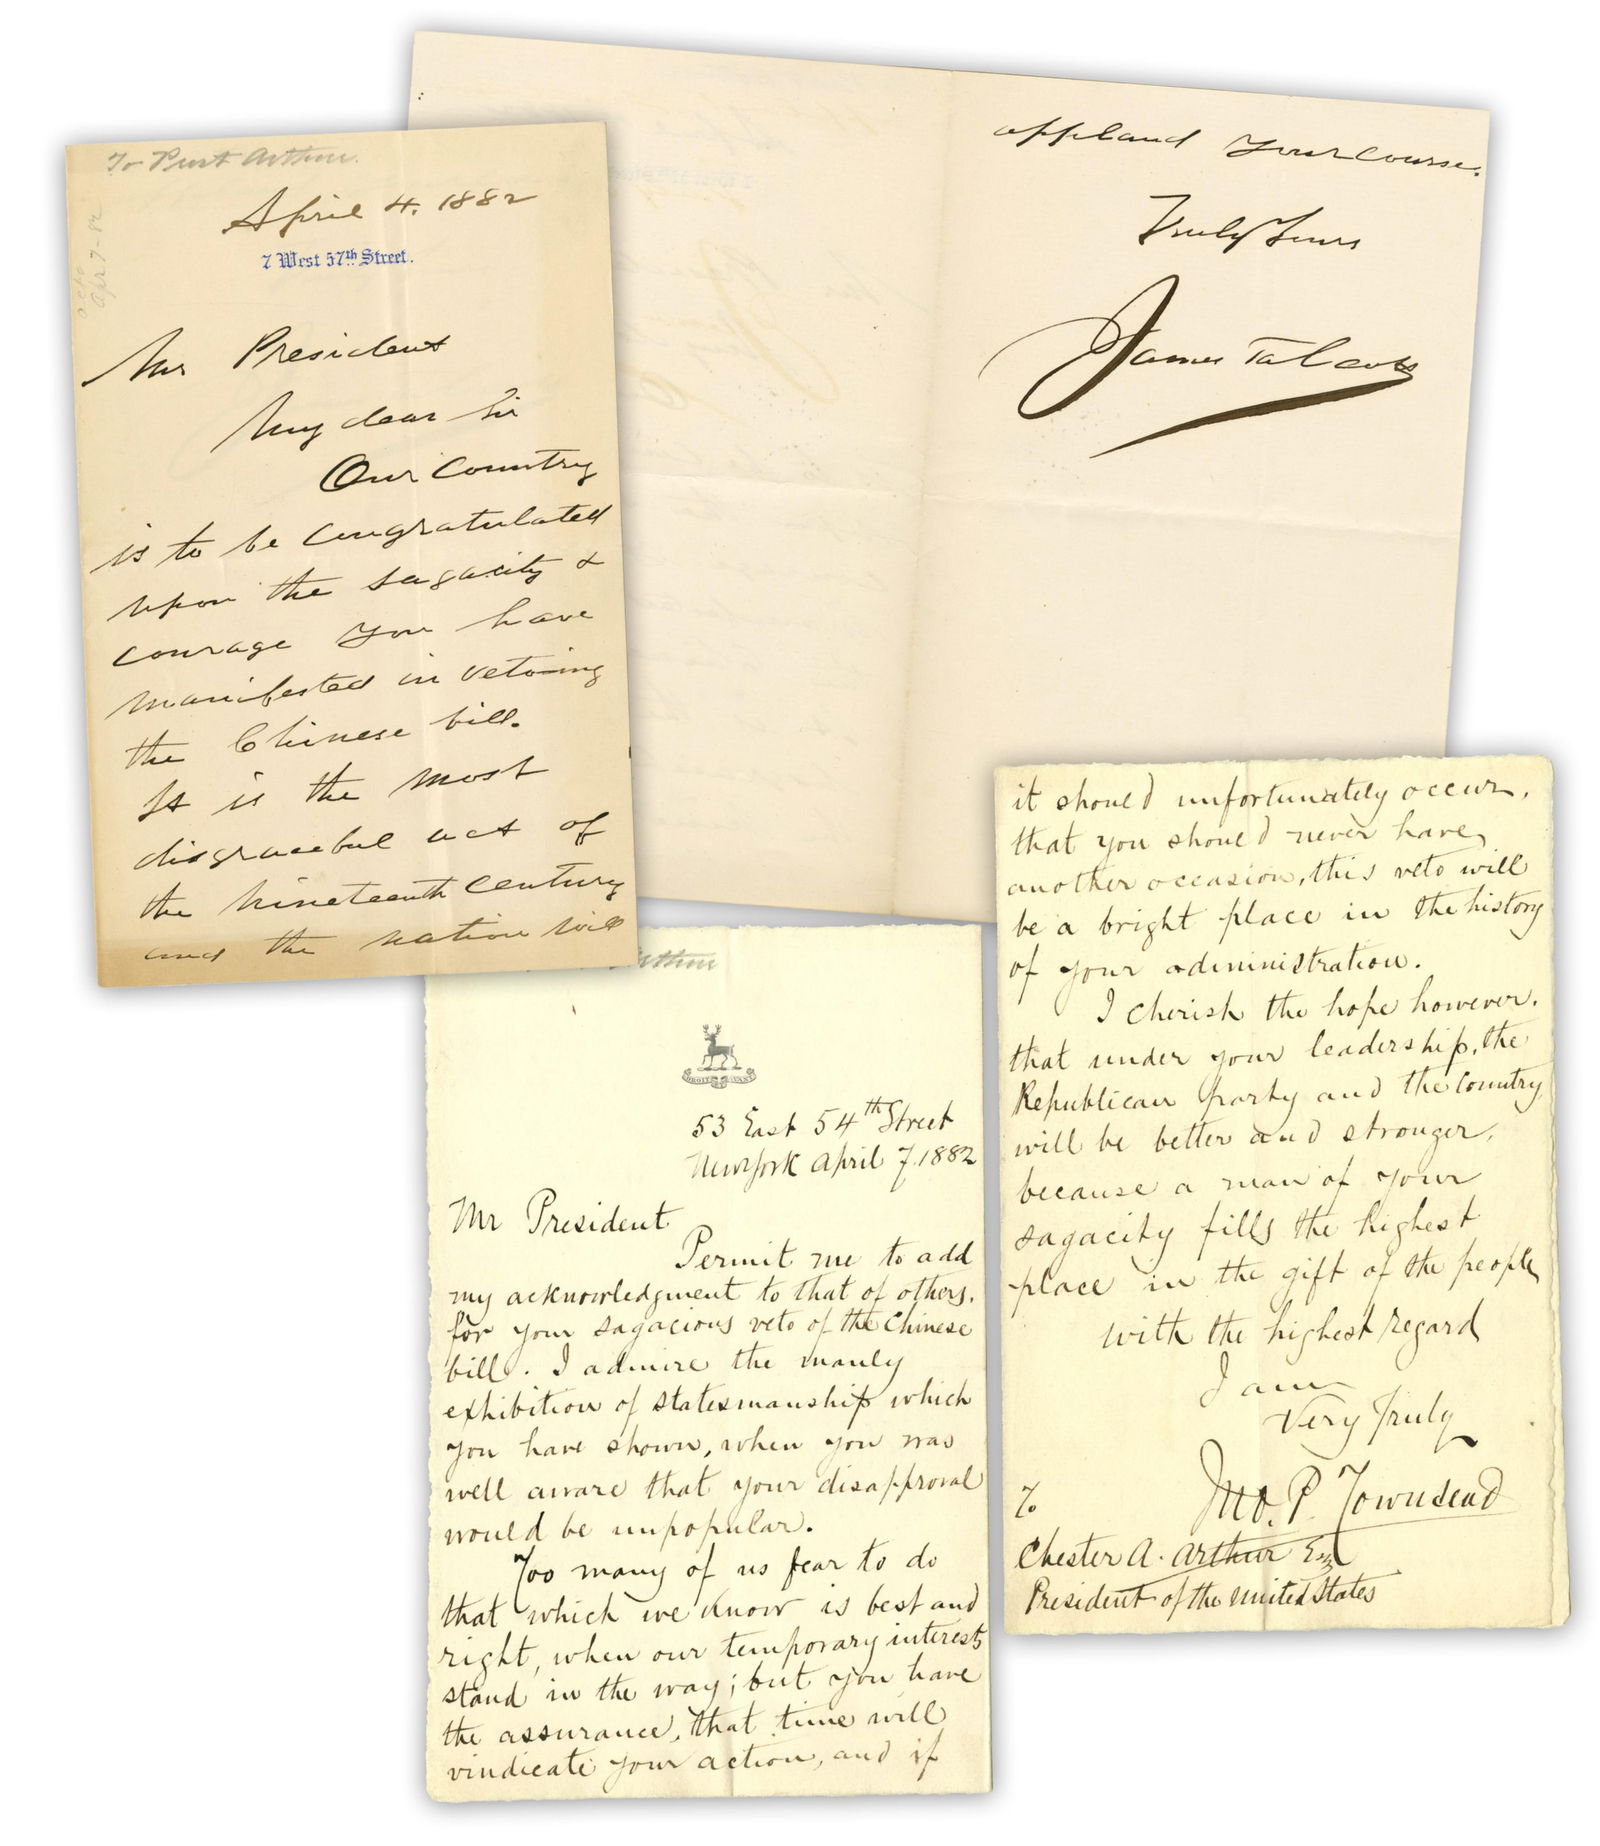 To Prest Arthur.
April 4. 1882
7 West 57th Street.
Apr 7-82
Mr President
My dear Sir
Our Country
is to be congratulated
upon the sagacity &
courage you have
manifested in vetoing
the Chinese bill.
It is the most
disgraceful act of
the Nineteenth Century
and the nation will
applaud your course.
Truly Yours
James Talcott
Arthur
53 East 54th Street
New York April 7. 1882
Mr President
Permit me to add
my acknowledgment to that of others,
for your sagacious veto of the Chinese
bill. I admire the manly
exhibition of statesmanship which
you have shown, when you was
well aware that your disapproval
would be unpopular.
Too many of us fear to do
that which we know is best and
right, when our temporary interests
stand in the way; but you have
the assurance, that time will
vindicate your action, and if
it should unfortunately occur,
that you should never have
another occasion, this veto will
be a bright place in the history
of your administration.
I cherish the hope however,
that under your leadership, the
Republican party and the Country,
will be better and stronger,
because a man of your
sagacity fills the highest
place in the gift of the people
with the highest regard
I am
Very Truly
Jno. P. Townsend
To
Chester A. Arthur Esq
President of the United States